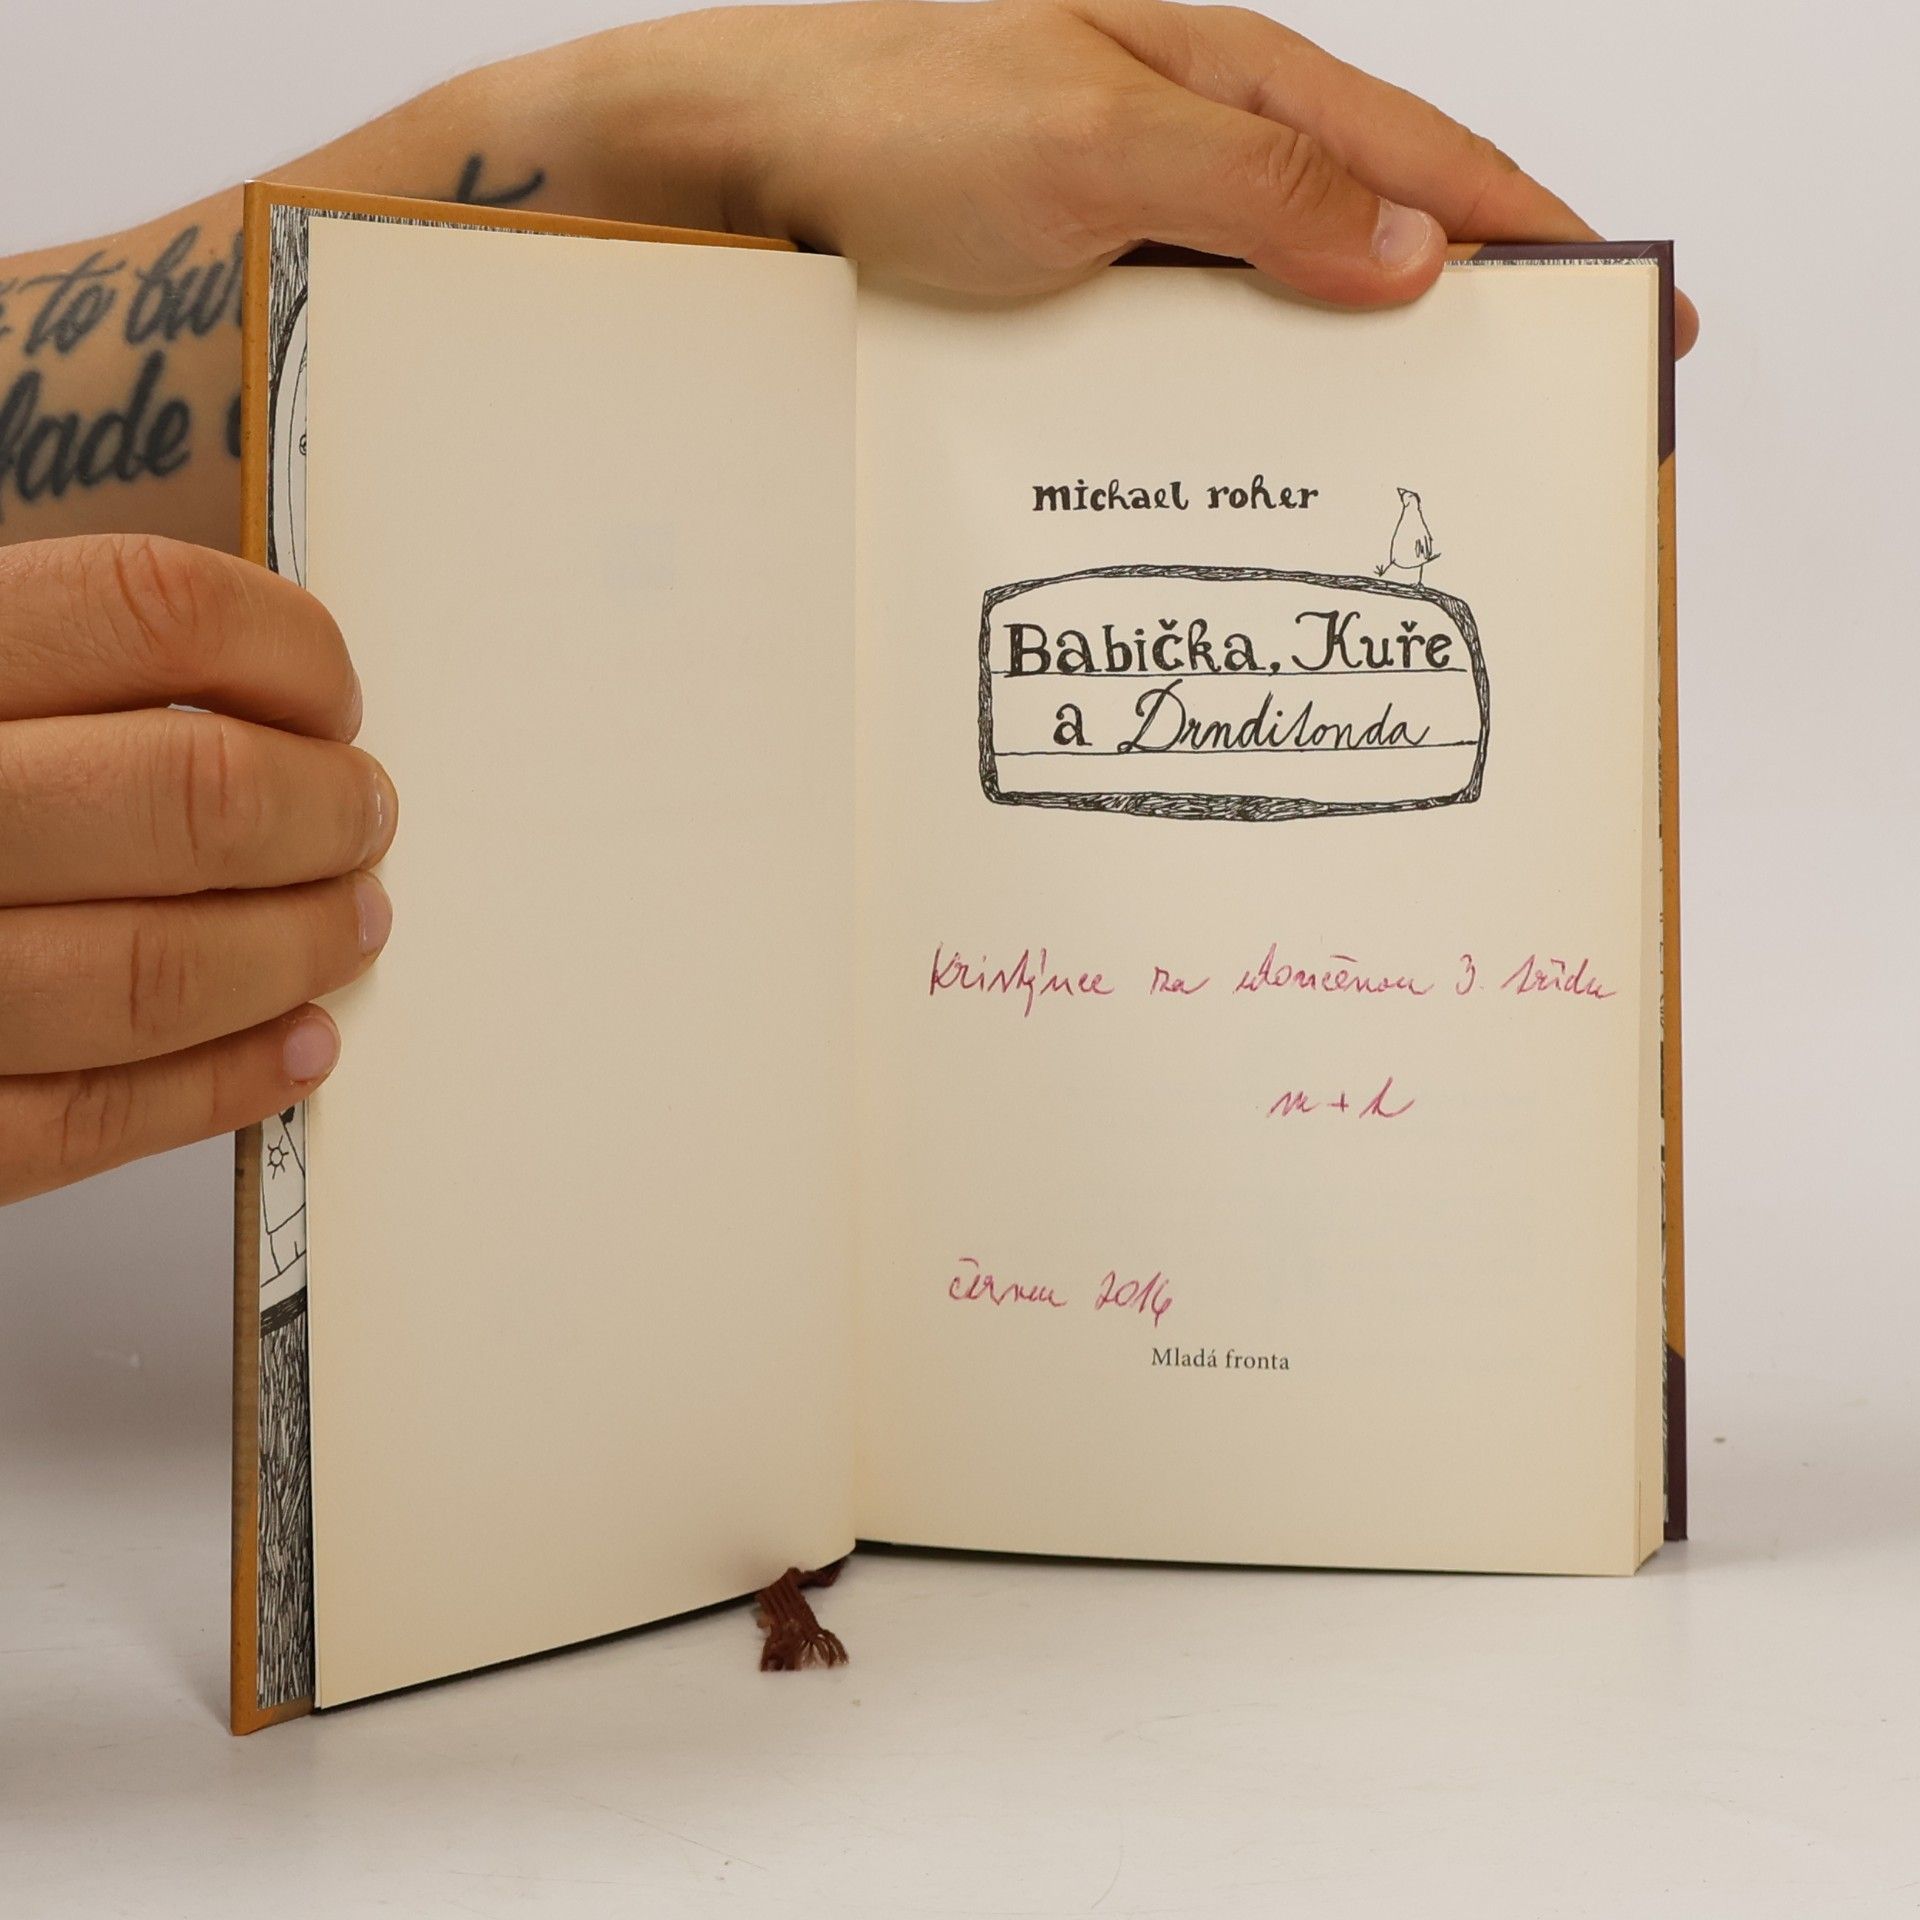 to bur
fade
michael roher
Babička, Kuře
a Drnditonda
Kristýnce za ukončenou 3. třídu
m + t
červen 2016
Mladá fronta